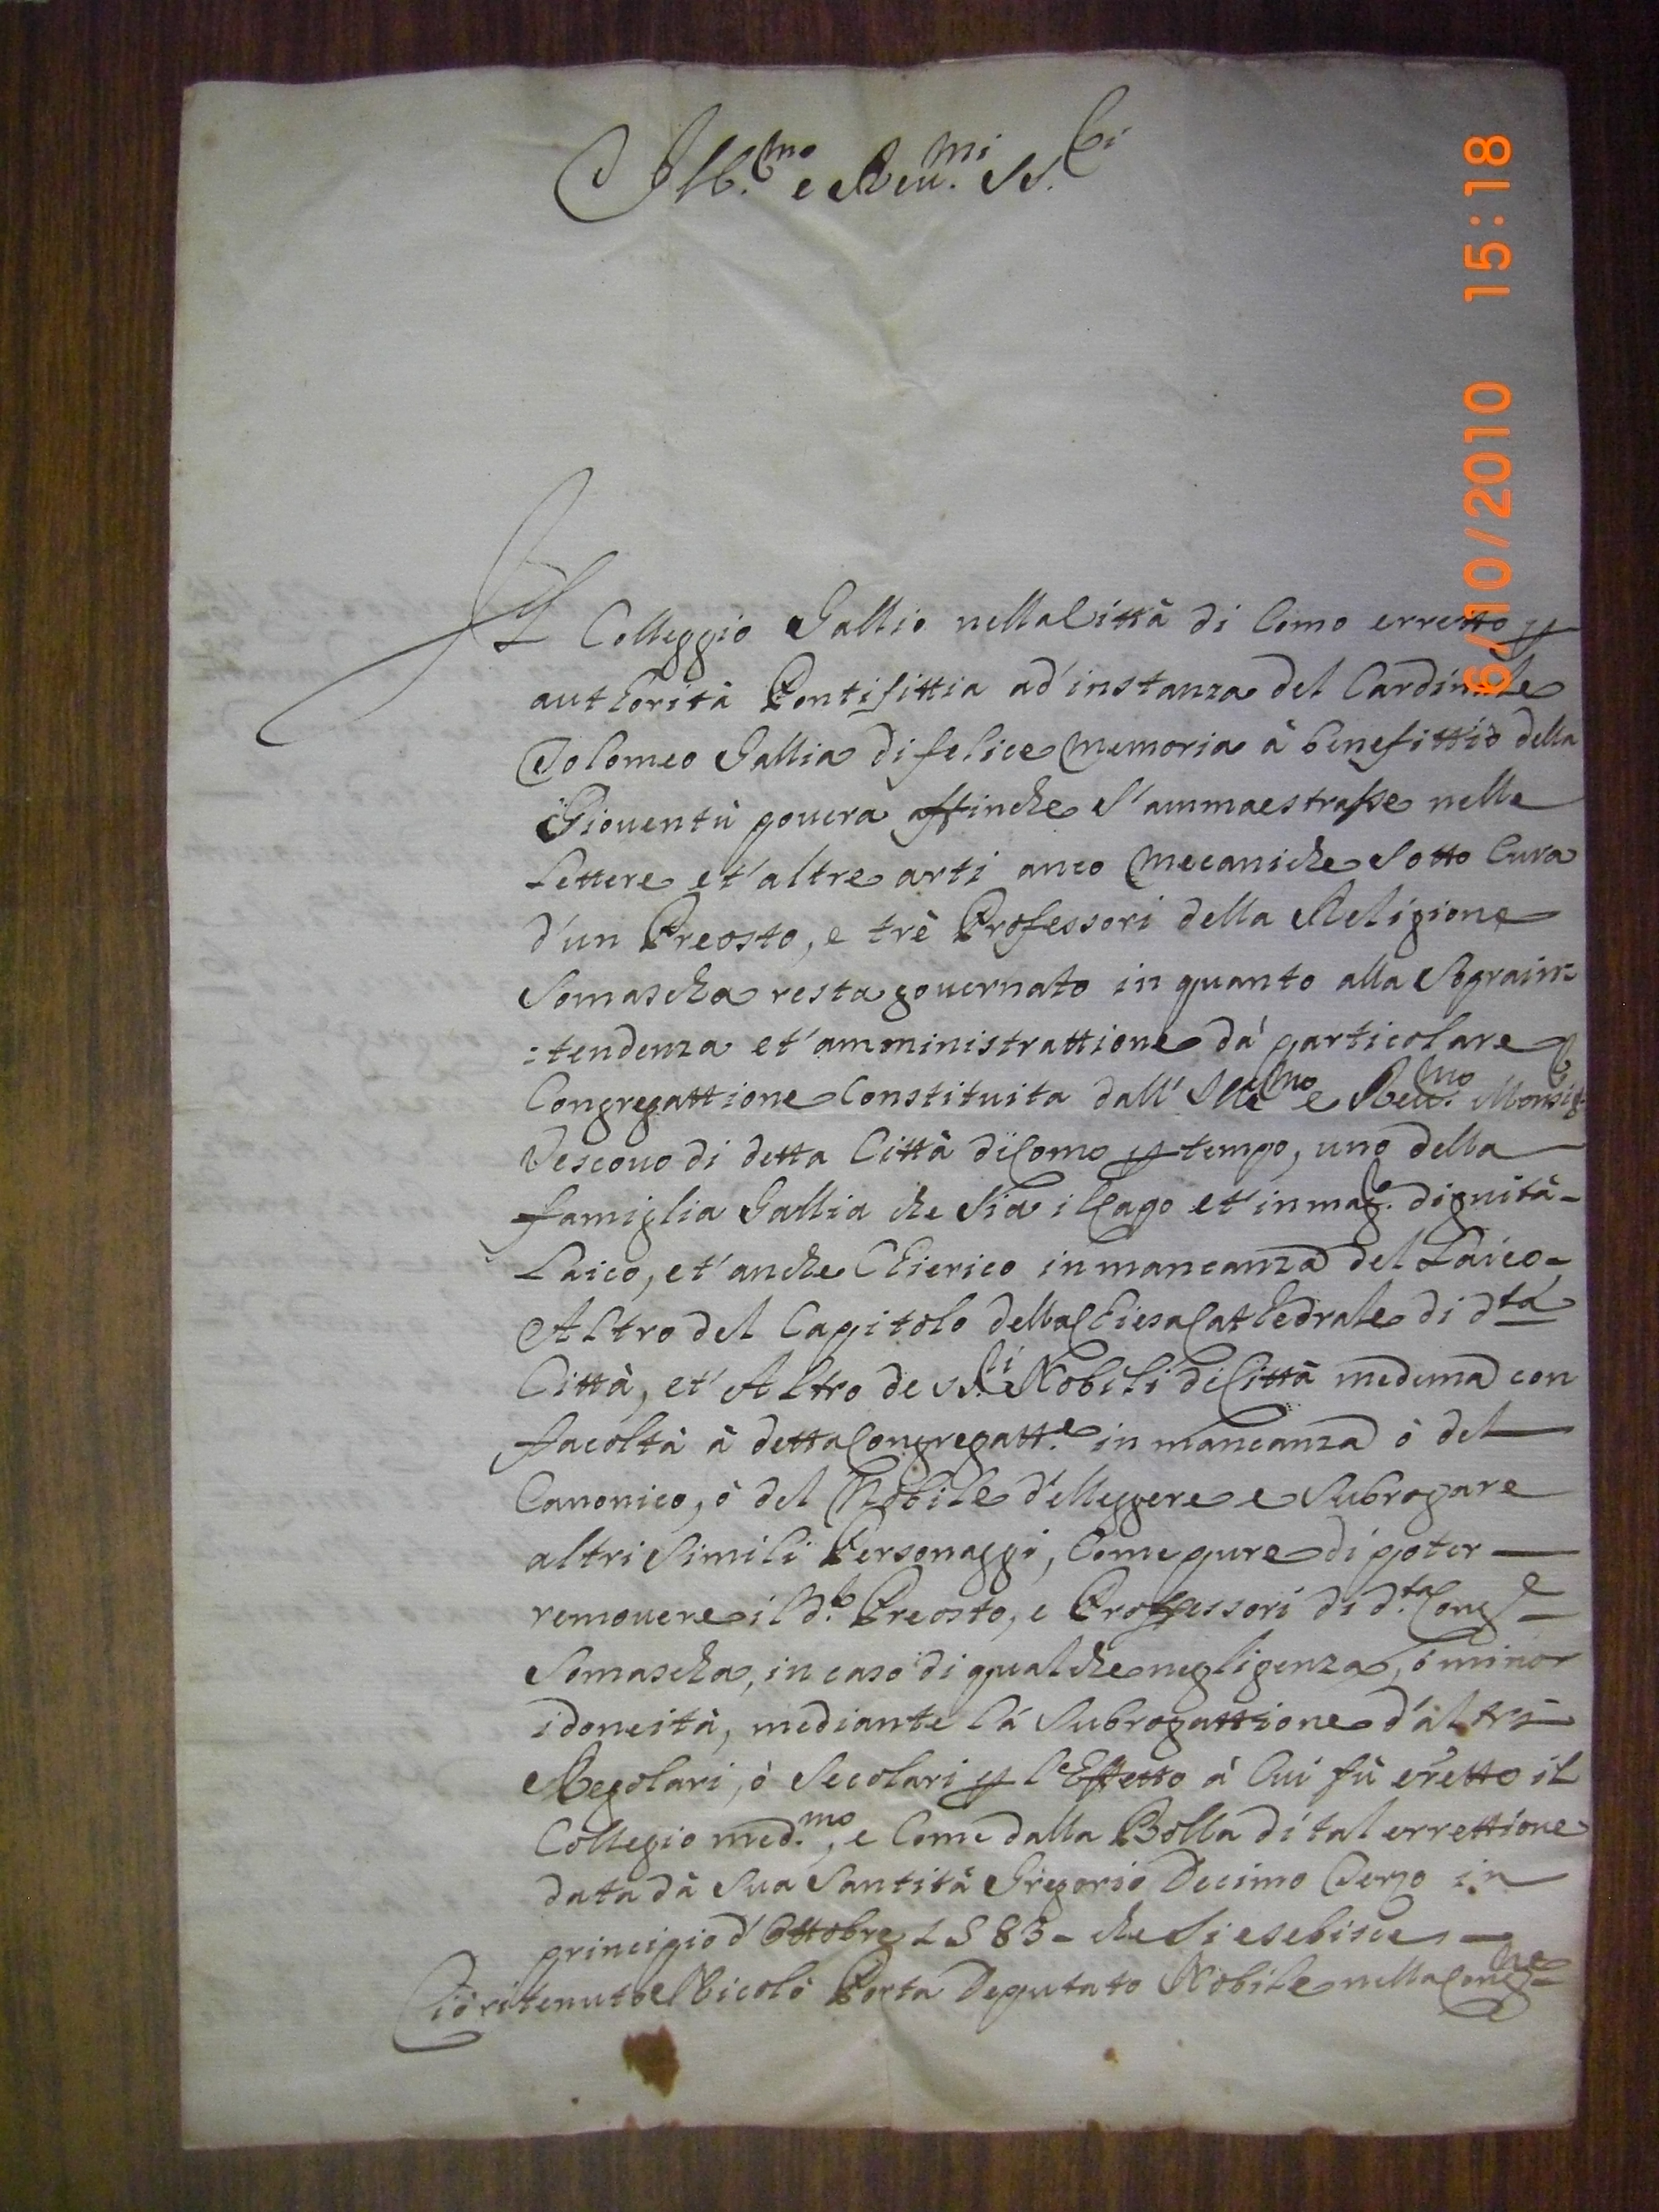 Ill.mo e Reu.mi SS.ri
Il Colleggio Gallio nella Città di Como erretto p
authorità Pontifittia ad'instanza del Cardinale
Tolomeo Gallia di felice memoria à benefittio della
Gioventù povera affinche s'ammaestrasse nelle
Lettere et'altre arti anco mecaniche sotto Cura
d'un Preosto, e trè Professori della Religione
Somascha resta governato in quanto alla Soprain=
:tendenza et'amministrattione da' particolare
Congregattione Constituita dall' Ill.mo e Reu.mo Monsig.r
Vescouo di detta Città di Como p tempo, uno della
famiglia Gallia che sia il Capo et'in mag.r dignità
Laico, et'anche Chierico in mancanza del Laico
Altro del Capitolo della Chiesa Cathedrale di d.ta
Città, et'Altro de SS.ri Nobili di Città medema con
facoltà à detta Congregatt.e in mancanza ò del
Canonico, ò del Nobile d'elleggere e subrogare
altri simili Personaggi, Come pure di poter
remouere il d.o Preosto, e Professori di d.ta Cong.e
Somascha, in caso di qualche negligenza, ò minor
idoneità, mediante la subrogattione d'altri
Regolari, ò Secolari p l'Effetto à Cui fù eretto il
Collegio med.mo, e Come dalla Bolla di tal errettione
data dà Sua Santità Gregorio Decimo Terzo in
principio d'Ottobre 1583 - che si esebisce
Ciò ritenuto Nicolò Porta Deputato Nobile nella Cong.ne
6/10/2010 15:18